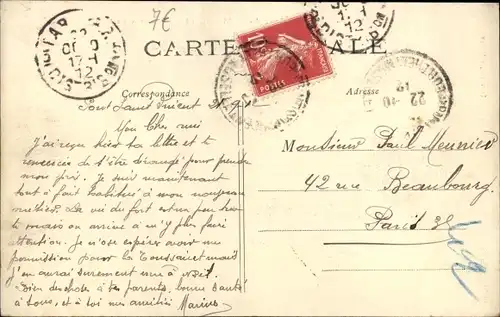 7€
CARTE POSTALE
Correspondance
Adresse
POSTES
22-10
12
Mon Cher ami
J'ai reçu hier ta lettre et te
remercie de t'être dérangé pour prendre
mon prix. Je suis maintenant
tout à fait habitué à mon nouveau
métier. La vie du fort est un peu
mais on arrive à n'y plus faire
attention. Je n'ose espérer avoir une
permission pour la Toussaint mais
j'en aurai surement une à
bien des choses à tes parents, bonne santé
à tous, et à toi mes amitiés Marius
Monsieur Paul Meunier
42 rue Beaubourg
Paris 3e